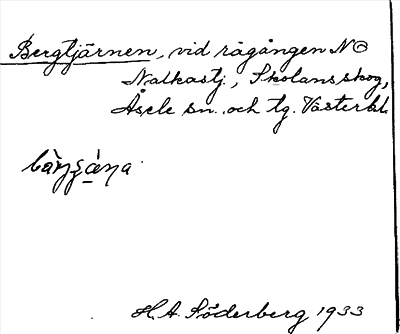 Bergtjärnen, vid rågången NO
Nalkastj., Skolans skog,
Åsele sn. och tg. Västerbl.
H.A. Söderberg 1933